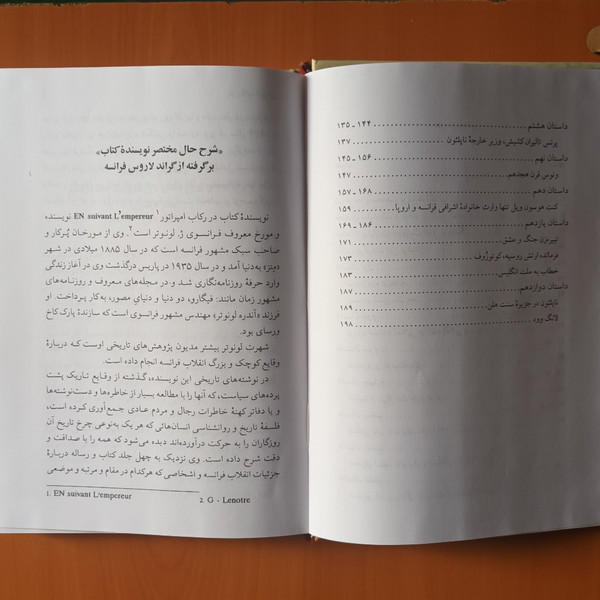 داستان هشتم ۱۴۴ ـ ۱۳۵
پرنس تالیران کشیش، وزیر خارجهٔ ناپلئون ۱۳۷
داستان نهم ۱۵۶ ـ ۱۴۵
ونوس قرن هجدهم ۱۴۷
داستان دهم ۱۶۸ ـ ۱۵۷
کنت هوسون ویل تنها وارث خانوادهٔ اشرافی فرانسه و اروپا ۱۵۹
داستان یازدهم ۱۸۶ ـ ۱۶۹
تبیرزن جنگ و عشق ۱۷۱
فرمانده ارتش روسیه، کوتوزُوف ۱۷۳
خطاب به ملت انگلیس ۱۸۳
داستان دوازدهم ۱۸۷
ناپلئون در جزیرهٔ سنت هلن ۱۸۹
لانگ وود ۱۹۸
«شرح حال مختصر نویسندهٔ کتاب»
برگرفته از گراند لاروس فرانسه
نویسندهٔ کتاب در رکاب امپراتور¹ EN suivant L'empereur نویسنده
و مورخ معروف فرانسوی ژ. لونوتر است². وی از مورخان پُرکار و
صاحب سبک مشهور فرانسه است که در سال ۱۸۸۵ میلادی در شهر
«مِتز» به‌دنیا آمد و در سال ۱۹۳۵ در پاریس درگذشت وی در آغاز زندگی
وارد حرفهٔ روزنامه‌نگاری شد و در مجله‌های معروف و روزنامه‌های
مشهور زمان مانند: فیگارو، دو دنیا و دنیای مصور، به‌کار پرداخت. او
فرزند «آندره لونوتر» مهندس مشهور فرانسوی است که سازندهٔ پارک کاخ
ورسای بود.
شهرت لونوتر بیشتر مدیون پژوهش‌های تاریخی اوست کـه دربارهٔ
وقایع کوچک و بزرگ انقلاب فرانسه انجام داده است.
در نوشته‌های تاریخی این نویسنده، گذشته از وقایع تاریک پشت
پرده‌های سیاست، که آنها را با مطالعه بسیار از خاطره‌ها و دست‌نوشته‌ها
و یا دفاتر کهنهٔ خاطرات رجال و مردم عادی جمع‌آوری کرده است،
فلسفهٔ تاریخ و روانشناسی انسان‌هائی که هر یک به‌نوعی چرخ تاریخ آن
روزگاران را به حرکت درآورده‌اند دیده می‌شود که همه را با صداقت و
دقت شرح داده است. وی نزدیک به چهل جلد کتاب و رساله دربارهٔ
جزئیات انقلاب فرانسه و اشخاصی که هرکدام در مقام و مرتبه و موضعی
1. EN suivant L'empereur 2. G - Lenotre